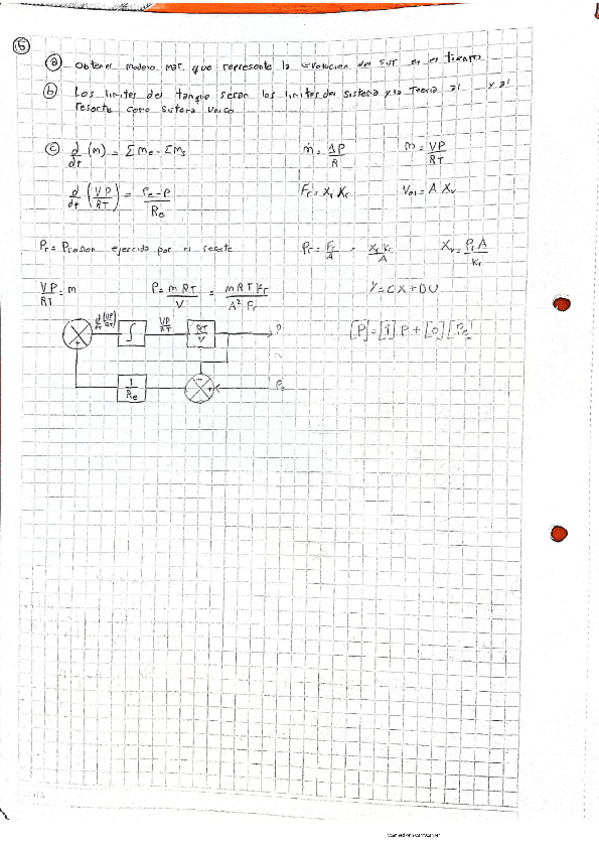 15
a Obtener modelo mat. que represente la evolucion del sist en el tiempo
b Los limites del tanque seran los limites del sistema y la al y al
resorte como sistema unico
c d/dt (m) = Σme - Σms ṁ = ΔP/R m = VP/RT
d/dt (VP/RT) = Pe-P/Re Fr = Xr Kr Vol = A Xr
Pr = Presion ejercida por el resorte Pr = Fr/A = Xr Kr/A Xr = Pr A/Kr
VP/RT = m P = mRT/V = mRTKr/A² Pr Y = CX + DU
d/dt (VP/RT) ∫ VP/RT RT/V P [P] = [1] P + [0] [Pe]
1/Re - + Pe